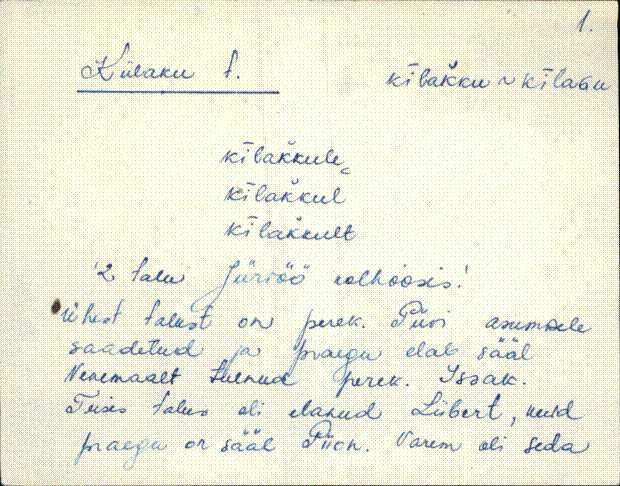 1.
Külaku t.
kīlak̆ku ~ kīlaGu
kīlak̆kule
kīlak̆kul
kīlak̆kult
'2 talu Jüriöö kolhoosis.'
Ühest talust on perek. Piiri asumisele
saadetud ja praegu elab sääl
Venemaalt tulnud perek. Issak.
Teises talus oli elanud Liibert, nüüd
praegu on sääl Piion. Varem oli seda